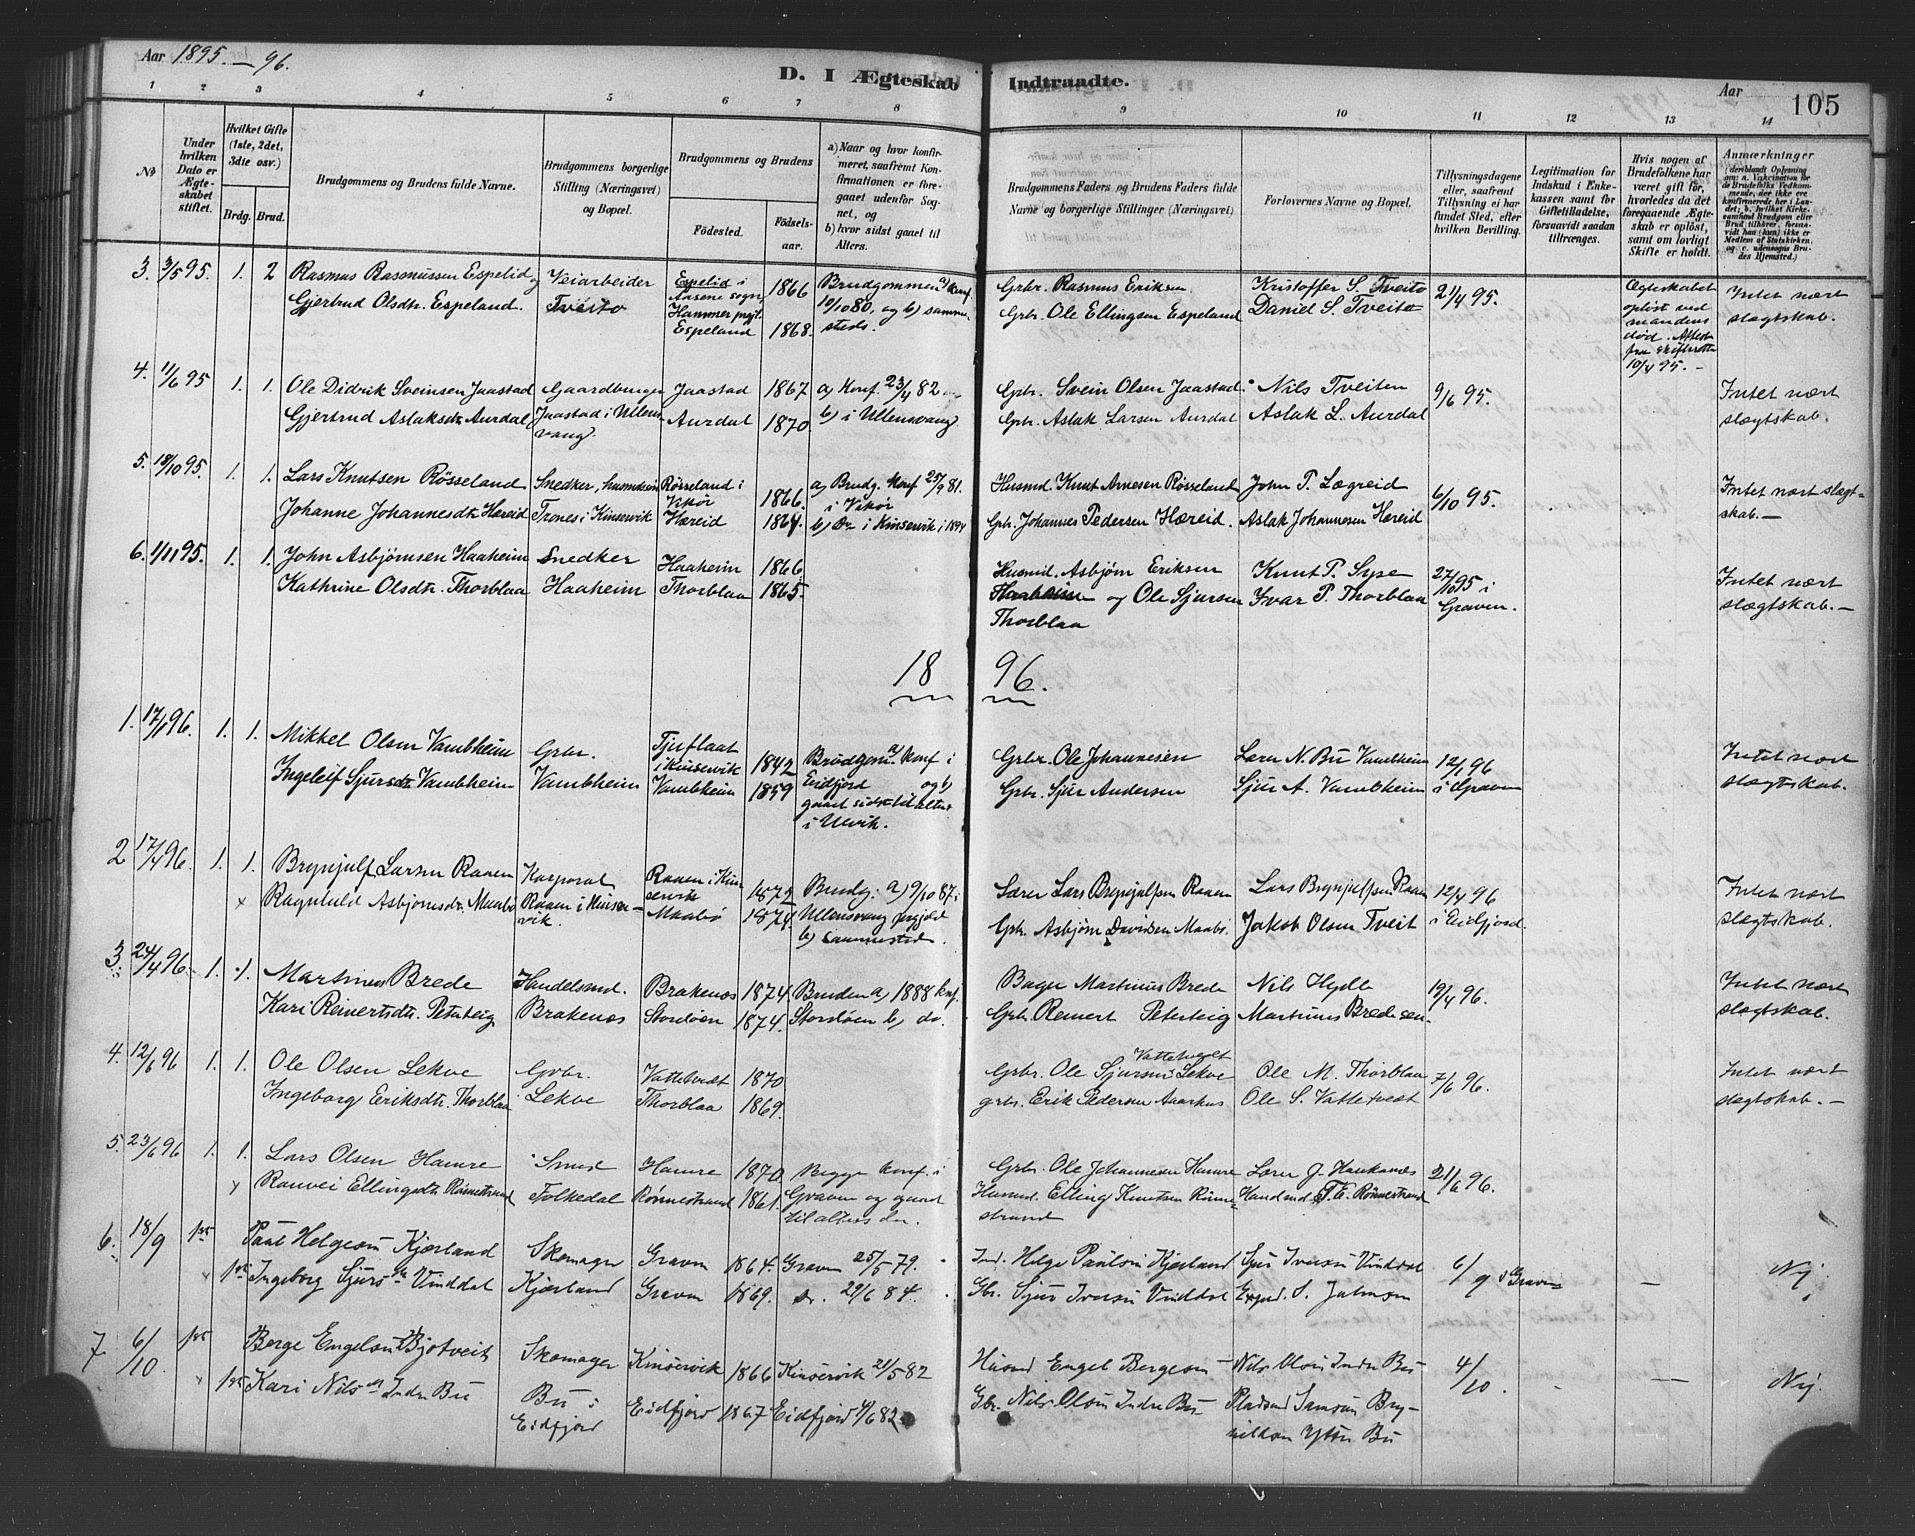 Aar 1895.—96.
D. I Ægteskab Indtraadte.
Aar 105
1 2 3 4 5 6 7 8 9 10 11 12 13 14
No
Under hvilken Dato er Ægteskabet stiftet.
Hvilket Gifte (1ste, 2det, 3die osv.)
Brdg. Brud.
Brudgommens og Brudens fulde Navne.
Brudgommens borgerlige Stilling (Næringsvei) og Bopæl.
Brudgommens og Brudens
Fødested. Fødselsaar.
a) Naar og hvor konfirmeret, saafremt Konfirmationen er foregaaet udenfor Sognet, og
b) hvor sidst gaaet til Alters.
Brudgommens Faders og Brudens Faders fulde Navne og borgerlige Stillinger (Næringsvei)
Forlovernes Navne og Bopæl.
Tillysningsdagene eller, saafremt Tillysning ei har fundet Sted, efter hvilken Bevilling.
Legitimation for Indskud i Enkekassen samt for Giftetilladelse, forsaavidt saadan tiltrænges.
Hvis nogen af Brudefolkene har været gift før, hvorledes da det foregaaende Ægteskab er opløst, samt om lovligt Skifte er holdt.
Anmærkninger
3. 3/5 95. 1. 2 Rasmus Rasmussen Espelid og Veiarbeider Espelid i 1866 Brudgommen a) konf. Grbr. Rasmus Eriksen. Kristoffer S. Tveito 21/4 95. Ægteskabet Intet nært
Gjertrud Olsdtr. Espeland. Tveito Aasene sogn, Hammer prgjl. Espeland 1868. 10/10 80, og b) sammesteds. Grb. Ole Ellingsen Espeland Daniel S. Tveito opløst ved mandens død. Attest fra skifteretten 10/4 95. — slægtskab.
4. 11/6 95 1. 1. Ole Didrik Sveinsen Jaastad Gaardbruger Jaastad 1867 a) Konf. 23/4 82 Grb. Svein Olsen Jaastad Nils Tveiten 9/6 95. Intet nært
Gjertrud Aslaksdtr Aurdal Jaastad i Ullensvang. Aurdal 1870 b) i Ullensvang. Grb. Aslak Larsen Aurdal Aslak L. Aurdal slægtskab.
5. 18/10 95 1. 1. Lars Knutsen Røsseland Snedker, Røsseland i Vikør 1866. a) Brudg. konf 25/9 81. i Vikør Husmd. Knut Arnesen Røsseland John P. Lægreid 6/10 95. Intet nært slægt=
Johanne Johannesdtr Hæreid Trones i Kinservik Hæreid 1864. b) Do i Kinservik i 1894 Grb. Johannes Pedersen Hæreid. Aslak Johannesen Hereid skab. —
6. 1/11 95. 1. 1. John Asbjørnsen Haaheim Snedker Haaheim 1866. Husmd. Asbjørn Eriksen Knut P. Syse 27/10 95 i Intet nært
Kathrine Olsdtr. Thorblaa Haaheim Thorblaa 1865. Haaheim og Ole Sjursen Ivar P. Thorblaa Graven. slægtskab. —
Thorblaa
18 96.
1. 17/1 96. 1. 1. Mikkel Olsen Vambheim Grbr. Tjerflaat i Kinservik 1842 Brudgom. a) konf i Grbr. Ole Johannesen Lars N. Bu Vambheim 12/1 96 Intet nært
Ingeleif Sjursdtr Vambheim Vambheim Vambheim 1859 Eidfjord og b) gaaet sidst til alters i Ulvik. Grb. Sjur Andersen Sjur A. Vambheim i Graven slægtskab.
2 17/4 96. 1. 1. Brynjulf Larsen Raaen Korporal Raaen i Kinservik 1872 Brudg: a) 9/10 87 i Lærer Lars Brynjulfsen Raaen Lars Brynjulfsen Raaen 12/4 96 Intet nært
x Ragnhild Asbjørnsdtr. Maabø Raaen i Kinservik. Maabø 1874. Ullensvang prgjeld b) sammested. Grb. Asbjørn Davidsen Maabø. Jakob Olsen Tveit i Eidfjord. slægtskab.
3. 24/4 96. 1. 1. Martinus Brede Handelsmd. Brakenæs 1874 Bruden a) 1888 konf. Bager Martinus Brede Nils Hylle 19/4 96. Intet nært
Kari Reinertsdtr. Peterteig Brakenæs Stordøen 1874. Stordøen b) do. Grb. Reinert Peterteig Martinus Bredesen slægtskab.
4. 12/6 96 1. 1. Ole Olsen Lekve Grbr. Vattetvedt 1870 Grbr. Ole Sjursen Vattetvedt Lekve Ole M. Thorblaa 7/6 96. Intet nært
Ingeborg Eriksdtr. Thorblaa Lekve Thorblaa 1869. grbr. Erik Pedersen Aarhus Ole S. Vattetvæt slægtskab. —
5. 23/6 96 1. 1. Lars Olsen Hamre Smed Hamre 1870 Begge konf. i Grb. Ole Johannesen Hamre Lærer J. Haukanæs 21/6 96.
x Ranvei Ellingsdtr. Rønnestrand Folkedal Rønnestrand 1861. Graven og gaaet til alters der. Husmd. Elling Knutsen Rønne= strand Handsmd T. E. Rønnestrand
6. 18/9 1ste Paul Helgesen Kjerland Skomager Graven 1864. Graven 25/5 79. Ind. Helge Paulsen Kjerland Sjur Iversen Vinddal 6/9 i Graven — Nej.
1ste Ingeborg Sjursdtr Vinddal Kjerland Graven 1869. Do. 29/6 84. Gbr. Sjur Iversen Vinddal S. Johnsen
7 6/10. 1ste Berge Engelsen Bjotveit Skomager Kinservik 1866 Kinservik 21/5 82 Husmd Engel Bergesen Nils Olsen Indre Bu 4/10. — Nej.
x 1ste Kari Nilsdtr Indre Bu Bu i Eidfjord Eidfjord 1867 Eidfjord 4/6 82 Gbr. Nils Olsen Indre Bu Pladsmd Samson Brynildsen Ytre Bu